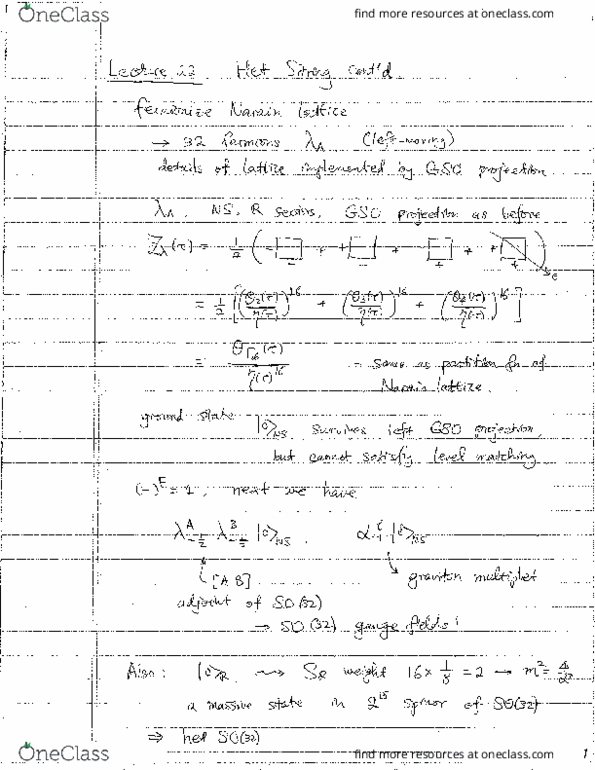 OneClass
find more resources at oneclass.com
Lecture 22 Het String cont'd
fermionize Narain lattice
→ 32 fermions λ_A (left-moving)
details of lattice implemented by GSO projection
λ_A, NS, R sectors, GSO projection as before
Z_λ(τ) = 1/2 ( - □ - + + □ - + □ + + + □ + ) 0
= 1/2 [ (θ_3(τ)/η(τ))^16 + (θ_4(τ)/η(τ))^16 + (θ_2(τ)/η(τ))^16 ]
= θ_Γ16(τ) / η(τ)^16 - same as partition fn of
Narain lattice.
ground state |0>_NS survives left GSO projection,
but cannot satisfy level matching
(-)^F = 1, next we have
λ^A_-1/2 λ^B_-1/2 |0>_NS α^i_-1 |0>_NS
[A B] graviton multiplet
adjoint of SO(32)
→ SO(32) gauge fields!
Also: |0>_R ⇝ S_R weight 16 × 1/8 = 2 → m² = 4/α'
a massive state in 2^15 spinor of SO(32)
⇒ het SO(32)
OneClass
find more resources at oneclass.com 1